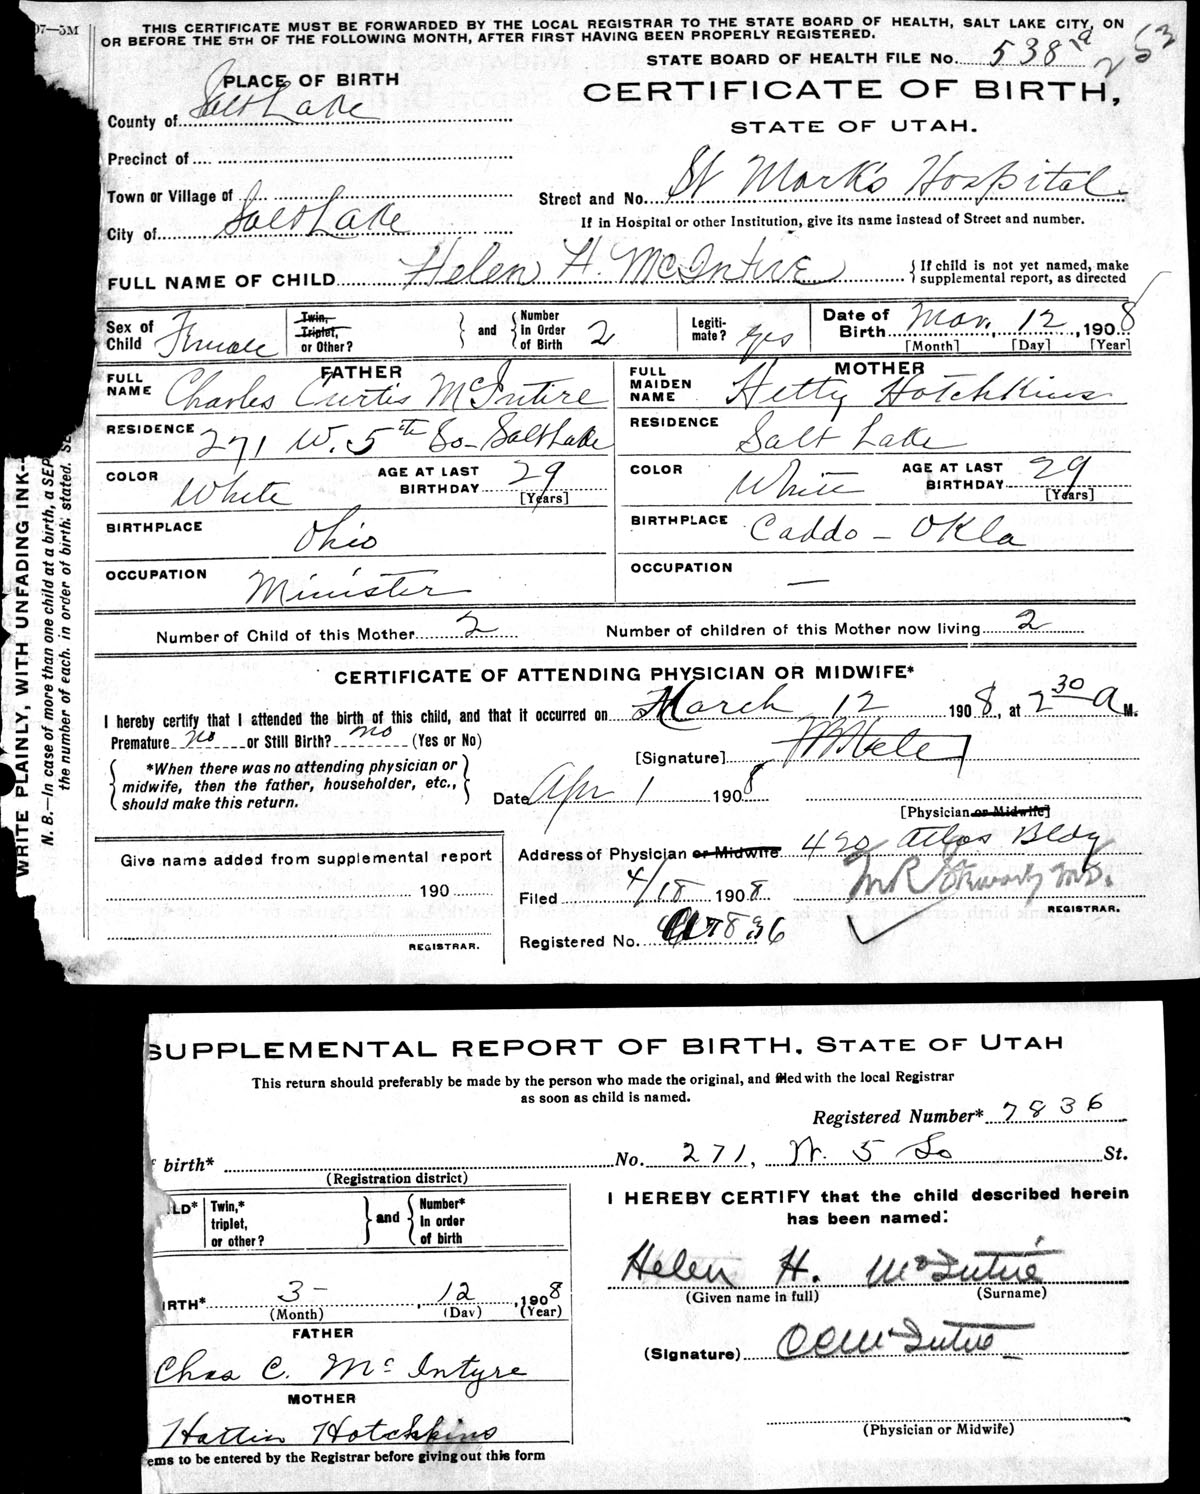 07—5M
THIS CERTIFICATE MUST BE FORWARDED BY THE LOCAL REGISTRAR TO THE STATE BOARD OF HEALTH, SALT LAKE CITY, ON
OR BEFORE THE 5TH OF THE FOLLOWING MONTH, AFTER FIRST HAVING BEEN PROPERLY REGISTERED.
STATE BOARD OF HEALTH FILE No. 538 253
PLACE OF BIRTH
CERTIFICATE OF BIRTH,
County of Salt Lake
STATE OF UTAH.
Precinct of
Town or Village of
Street and No. St Mark's Hospital
City of Salt Lake
If in Hospital or other Institution, give its name instead of Street and number.
FULL NAME OF CHILD Helen H. McIntire
{ If child is not yet named, make
supplemental report, as directed
Sex of Child Female
Twin, Triplet, or Other?
and
Number In Order of Birth 2
Legiti-mate? yes
Date of Birth Mar. 12, 1908
[Month] [Day] [Year]
FATHER
FULL NAME Charles Curtis McIntire
MOTHER
FULL MAIDEN NAME Hetty Hotchkins
RESIDENCE 271 W. 5th So- Salt Lake
RESIDENCE Salt Lake
COLOR White AGE AT LAST BIRTHDAY 29 [Years]
COLOR White AGE AT LAST BIRTHDAY 29 [Years]
BIRTHPLACE Ohio
BIRTHPLACE Caddo - Okla
OCCUPATION Minister
OCCUPATION —
Number of Child of this Mother 2 Number of children of this Mother now living 2
CERTIFICATE OF ATTENDING PHYSICIAN OR MIDWIFE*
I hereby certify that I attended the birth of this child, and that it occurred on March 12 1908, at 2 30 A M.
Premature no or Still Birth? no (Yes or No)
[Signature]
{ *When there was no attending physician or
midwife, then the father, householder, etc.,
should make this return. }
Date Apr 1 1908
[Physician or Midwife]
Address of Physician or Midwife 420 Atlas Bldg
Give name added from supplemental report
190
REGISTRAR.
Filed 4/18 1908
M.D.
REGISTRAR.
Registered No. 7836
WRITE PLAINLY, WITH UNFADING INK—
N. B.—In case of more than one child at a birth, a SEP
the number of each, in order of birth, stated.
SUPPLEMENTAL REPORT OF BIRTH, STATE OF UTAH
This return should preferably be made by the person who made the original, and filed with the local Registrar
as soon as child is named.
Registered Number* 7836
birth* No. 271, W. 5 So St.
(Registration district)
LD*
Twin,* triplet, or other?
and
Number* In order of birth
I HEREBY CERTIFY that the child described herein
has been named:
Helen H. McIntire
(Given name in full) (Surname)
IRTH* 3- , 12 , 1908
(Month) (Day) (Year)
FATHER
Chas C. McIntyre
(Signature) CC McIntire
MOTHER
Hattin Hotchkins
(Physician or Midwife)
ems to be entered by the Registrar before giving out this form